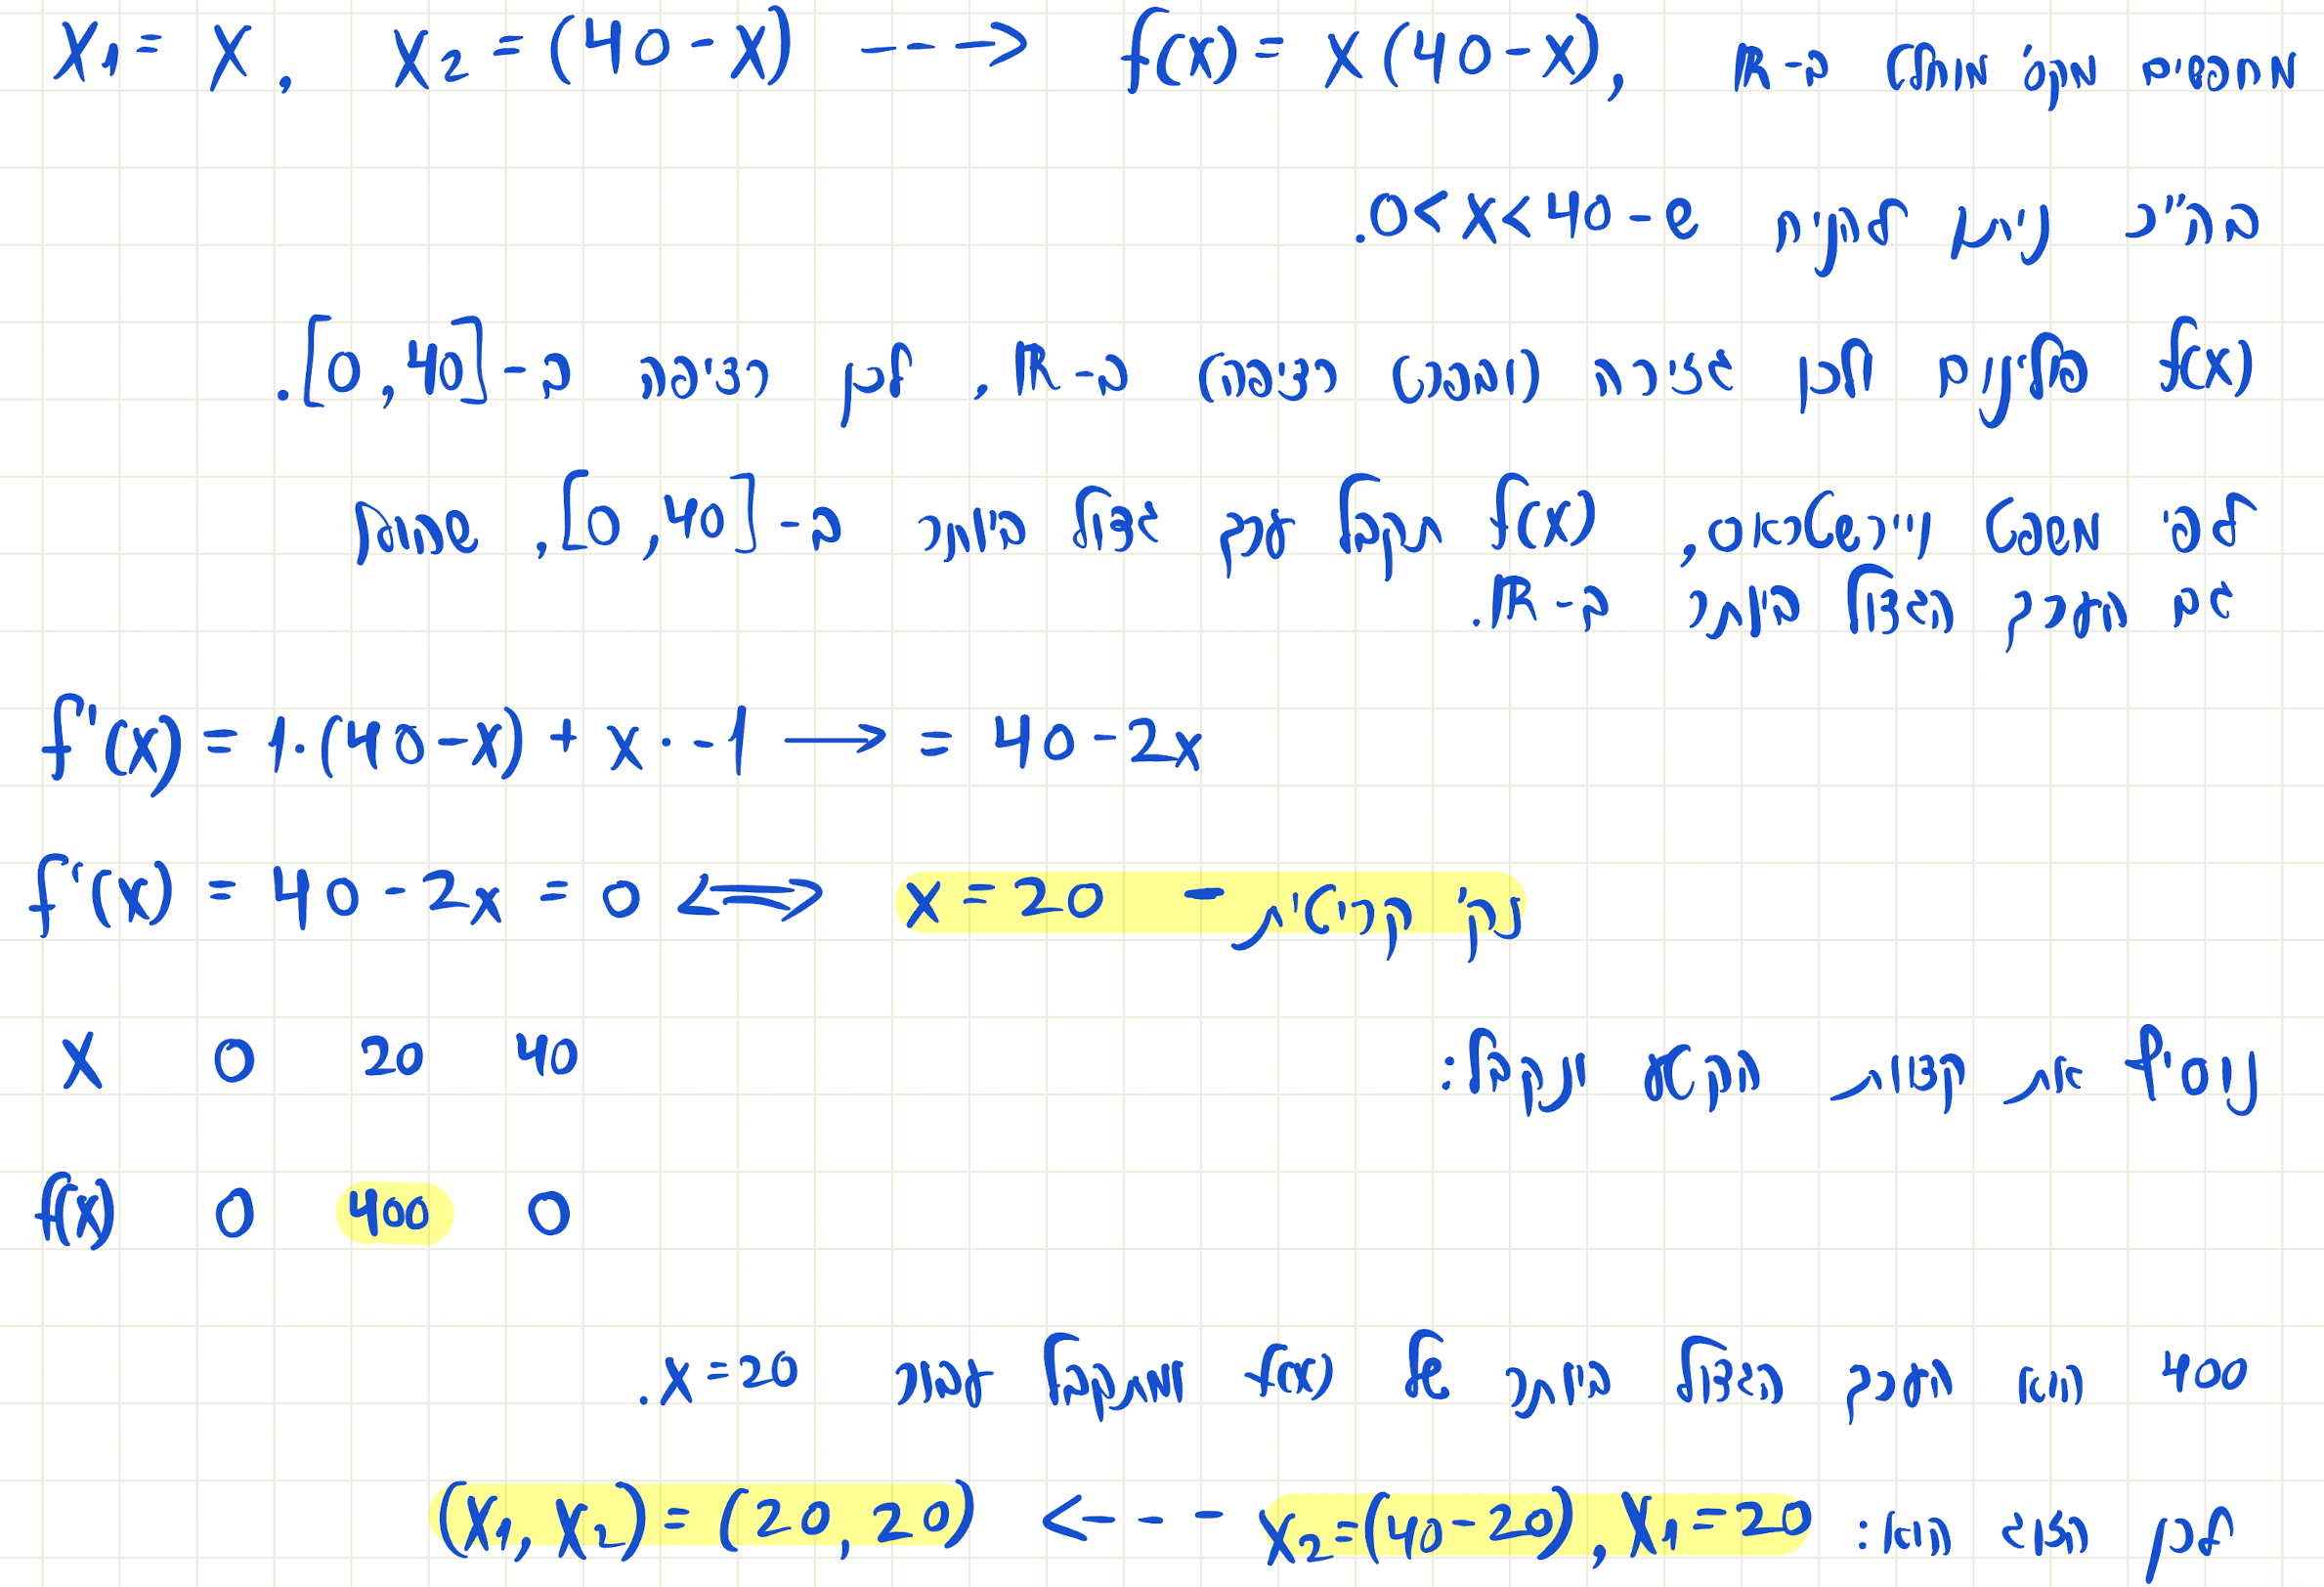 X₁ = X, X₂ = (40-X) ---> f(x) = X(40-X), מחפשים מקס' מוחלט ב-ℝ
בה"כ ניתן להניח ש-0<X<40.
f(x) פולינום ולכן גזירה (ובפרט רציפה) ב-ℝ, לכן רציפה ב-[0,40].
לפי משפט ויירשטראס, f(x) תקבל ערך גדול ביותר ב-[0,40], שהוא
גם הערך הגדול ביותר ב-ℝ.
f'(x) = 1·(40-x) + x·-1 ⟶ = 40-2x
f'(x) = 40-2x = 0 ⟺ x=20 - נק' קריטית
נוסיף את קצוות הקטע ונקבל:
X 0 20 40
f(x) 0 400 0
400 הוא הערך הגדול ביותר של f(x) ומתקבל עבור X=20.
לכן הזוג הוא: X₂=(40-20), X₁=20 ---> (X₁,X₂)=(20,20)